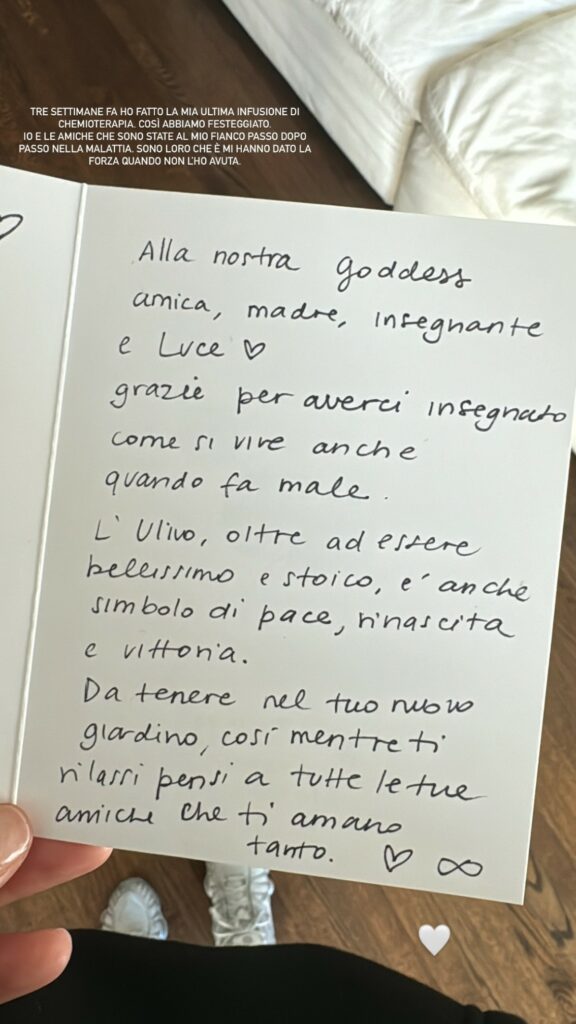 TRE SETTIMANE FA HO FATTO LA MIA ULTIMA INFUSIONE DI
CHEMIOTERAPIA. COSÌ ABBIAMO FESTEGGIATO.
IO E LE AMICHE CHE SONO STATE AL MIO FIANCO PASSO DOPO
PASSO NELLA MALATTIA. SONO LORO CHE È MI HANNO DATO LA
FORZA QUANDO NON L'HO AVUTA.
Alla nostra goddess
amica, madre, insegnante
e Luce ♡
grazie per averci insegnato
come si vive anche
quando fa male.
L'Ulivo, oltre ad essere
bellissimo e stoico, e' anche
simbolo di pace, rinascita
e vittoria.
Da tenere nel tuo nuovo
giardino, così mentre ti
rilassi pensi a tutte le tue
amiche che ti amano
tanto. ♡ ∞